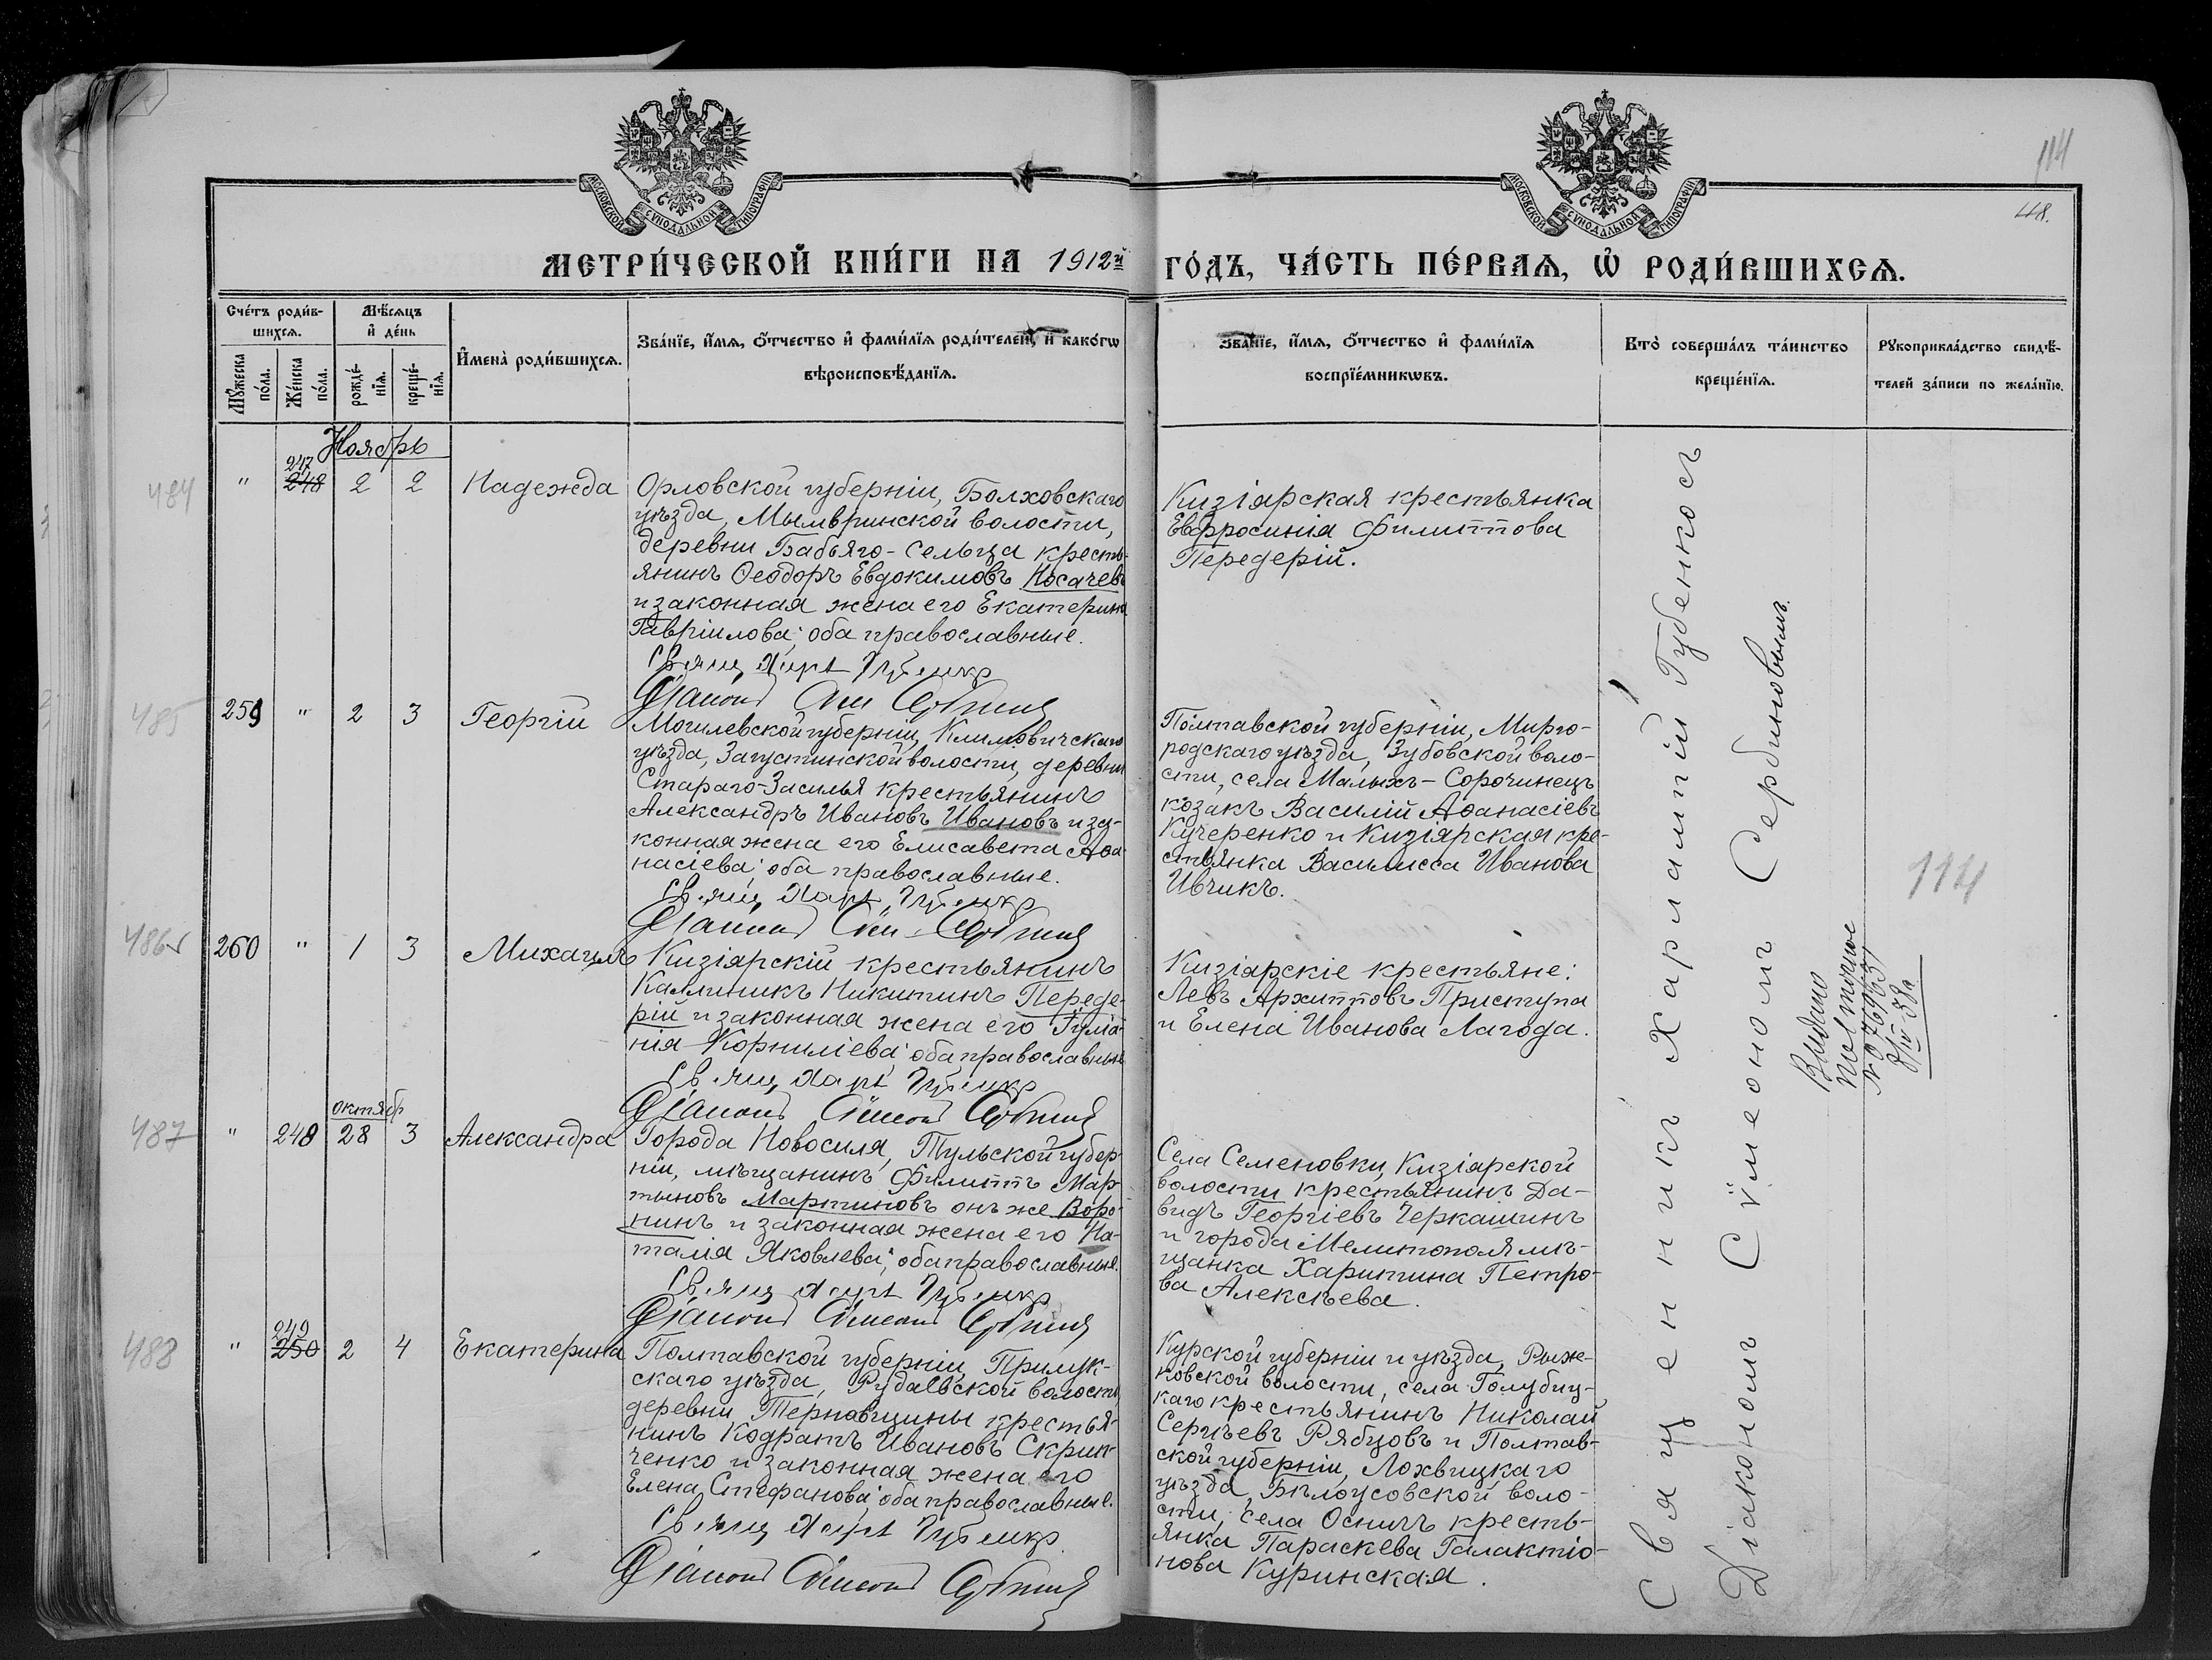 114
48.
МОСКОВСКОЙ СѴНОДАЛЬНОЙ ТИПОГРАФІИ
МОСКОВСКОЙ СѴНОДАЛЬНОЙ ТИПОГРАФІИ
МЕТРИ́ЧЕСКОЙ КНИ́ГИ НА 1912й ГО́ДЪ, ЧА́СТЬ ПЕ́РВАѦ, Ѡ҆ РОДИ́ВШИХСѦ.
Сче́тъ роди́в-
шихсѧ.
Мꙋ́жеска по́ла.
Же́нска по́ла.
Мѣ́сѧцъ
и҆ де́нь
рожде́-
нїѧ.
креще́-
нїѧ.
И҆мена̀ роди́вшихсѧ.
Зва́нїе, и҆́мѧ, ѻ҆́тчество и҆ фами́лїѧ роди́телей, и҆ како́гѡ
вѣроисповѣ́данїѧ.
Зва́нїе, и҆́мѧ, ѻ҆́тчество и҆ фами́лїѧ
воспрїе́мникѡвъ.
Кто̀ соверша́лъ та́инство
креще́нїѧ.
Рꙋкоприкла́дство свидѣ́-
телей за́писи по жела́нїю.
Ноябрь
484
"
247
248
2
2
Надежда
Орловской губерніи, Болховскаго
уѣзда, Мымвринской волости,
деревни Бабьяго-сельца кресть-
янинъ Ѳеодоръ Евдокимовъ Носачевъ
и законная жена его Екатерина
Гавріилова; оба православные.
Свящ Харл Губенко
Діаконъ Сѵм Сербинов
Кизіарская крестьянка
Евфросинія Филиппова
Передерій.
485
259
"
2
3
Георгій
Могилевской губерніи, Климовичскаго
уѣзда, Загустинской волости, деревни
Стараго-Засилья крестьянинъ
Александръ Ивановъ Ивановъ и за-
конная жена его Елисавета Аѳа-
насіева; оба православные.
Свящ Харл Губенко
Діаконъ Сѵм Сербинов
Полтавской губерніи, Мирго-
родскаго уѣзда, Зубовской воло-
сти, села Малыхъ-Сорочинецъ
козакъ Василій Аѳанасіевъ
Кучеренко и Кизіярская кре-
стьянка Василисса Иванова
Ивчикъ.
486
260
"
1
3
Михаилъ
Кизіярскій крестьянинъ
Каллиникъ Никитинъ Переде-
рій и законная жена его Іуліа-
нія Корниліева; оба православные
Свящ Харл Губенко
Діаконъ Сѵмеонъ Сербинов
Кизіарскіе крестьяне:
Левъ Архипповъ Приступа
и Елена Иванова Лагода.
октябр
487
"
248
28
3
Александра
Города Новосиля, Тульской губер-
ніи, мѣщанинъ Филиппъ Мар-
тыновъ Мартиновъ онъ же Воро-
нинъ и законная жена его На-
талія Яковлева; оба православные.
Свящ Харл Губенко
Діаконъ Сѵмеонъ Сербинов
Села Семеновки, Кизіарской
волости крестьянинъ Да-
видъ Георгіевъ Черкашинъ
и города Мелитополя мѣ-
щанка Харитина Петро-
ва Алексѣева.
488
"
249
250
2
4
Екатерина
Полтавской губерніи, Прилук-
скаго уѣзда, Рудаевской волости
деревни Терновщины крестья-
нинъ Кодратъ Ивановъ Скрип-
ченко и законная жена его
Елена Стефанова; оба православные.
Свящ Харл Губенко
Діаконъ Сѵмеонъ Сербинов
Курской губерніи и уѣзда, Рыж-
ковской волости, села Голубиц-
каго крестьянинъ Николай
Сергѣевъ Рябцовъ и Полтав-
ской губерніи, Лохвицкаго
уѣзда, Бѣлоусовской воло-
сти, села Оснягъ кресть-
янка Параскева Галактіо-
нова Куринская.
Священникъ Харлампій Губенко съ
Діакономъ Сѵмеономъ Сербиновымъ.
Выдано
повторное
114